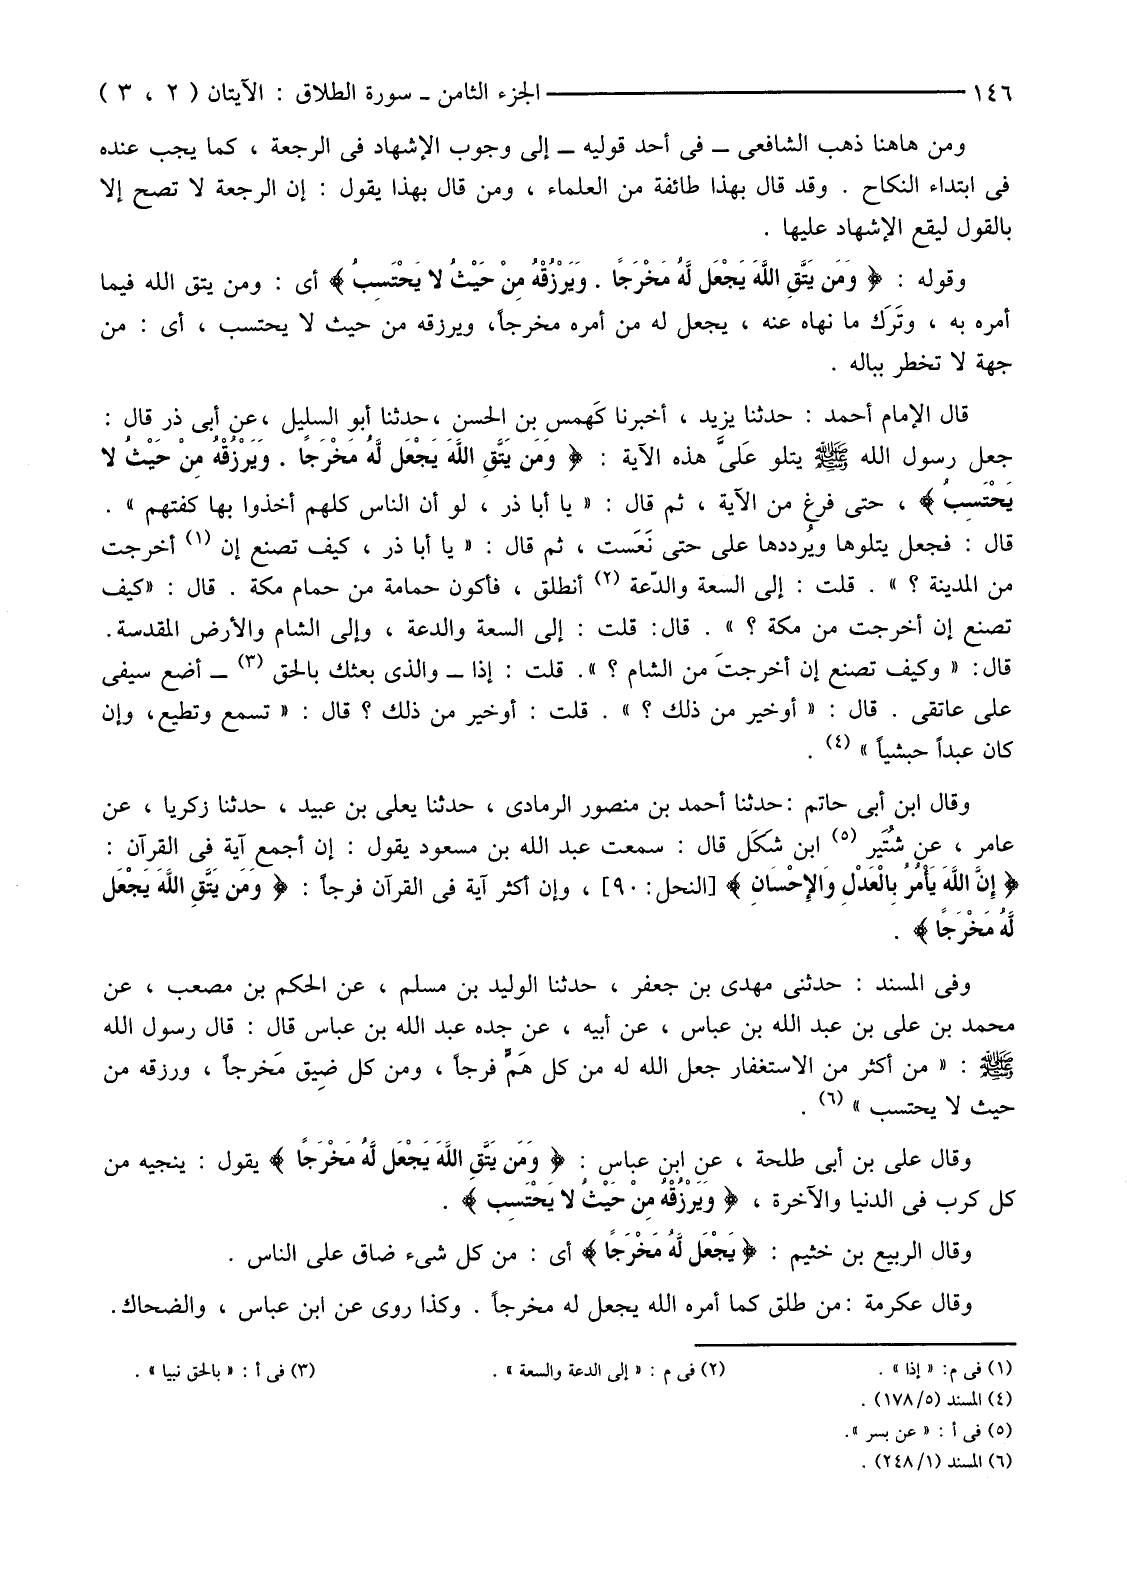 ١٤٦ ــــــ الجزء الثامن ـ سورة الطلاق : الآيتان ( ٢ ، ٣ )
ومن هاهنا ذهب الشافعى ــ فى أحد قوليه ــ إلى وجوب الإشهاد فى الرجعة ، كما يجب عنده
فى ابتداء النكاح . وقد قال بهذا طائفة من العلماء ، ومن قال بهذا يقول : إن الرجعة لا تصح إلا
بالقول ليقع الإشهاد عليها .
وقوله : ﴿ وَمَن يَتَّقِ اللَّهَ يَجْعَل لَّهُ مَخْرَجًا . وَيَرْزُقْهُ مِنْ حَيْثُ لا يَحْتَسِبُ ﴾ أى : ومن يتق الله فيما
أمره به ، وتَرَك ما نهاه عنه ، يجعل له من أمره مخرجاً، ويرزقه من حيث لا يحتسب ، أى : من
جهة لا تخطر بباله .
قال الإمام أحمد : حدثنا يزيد ، أخبرنا كَهمس بن الحسن ،حدثنا أبو السليل ،عن أبى ذر قال :
جعل رسول الله ﷺ يتلو عَلَىَّ هذه الآية : ﴿ وَمَن يَتَّقِ اللَّهَ يَجْعَل لَّهُ مَخْرَجًا . وَيَرْزُقْهُ مِنْ حَيْثُ لا
يَحْتَسِبُ ﴾ ، حتى فرغ من الآية ، ثم قال : « يا أبا ذر ، لو أن الناس كلهم أخذوا بها كفتهم » .
قال : فجعل يتلوها ويُرددها على حتى نَعَست ، ثم قال : « يا أبا ذر ، كيف تصنع إن (١) أخرجت
من المدينة ؟ » . قلت : إلى السعة والدّعة (٢) أنطلق ، فأكون حمامة من حمام مكة . قال : «كيف
تصنع إن أخرجت من مكة ؟ » . قال: قلت : إلى السعة والدعة ، وإلى الشام والأرض المقدسة.
قال: « وكيف تصنع إن أخرجتَ من الشام ؟ ». قلت : إذا ــ والذى بعثك بالحق (٣) ــ أضع سيفى
على عاتقى . قال : « أوخير من ذلك ؟ » . قلت : أوخير من ذلك ؟ قال : « تسمع وتطيع، وإن
كان عبداً حبشياً » (٤) .
وقال ابن أبى حاتم :حدثنا أحمد بن منصور الرمادى ، حدثنا يعلى بن عبيد ، حدثنا زكريا ، عن
عامر ، عن شُتَير (٥) ابن شكَل قال : سمعت عبد الله بن مسعود يقول : إن أجمع آية فى القرآن :
﴿ إِنَّ اللَّهَ يَأْمُرُ بِالْعَدْلِ وَالإِحْسَانِ ﴾ [النحل: ٩٠] ، وإن أكثر آية فى القرآن فرجاً : ﴿ وَمَن يَتَّقِ اللَّهَ يَجْعَل
لَّهُ مَخْرَجًا ﴾ .
وفى المسند : حدثنى مهدى بن جعفر ، حدثنا الوليد بن مسلم ، عن الحكم بن مصعب ، عن
محمد بن على بن عبد الله بن عباس ، عن أبيه ، عن جده عبد الله بن عباس قال : قال رسول الله
ﷺ : « من أكثر من الاستغفار جعل الله له من كل هَمٍّ فرجاً ، ومن كل ضِيق مَخرجاً ، ورزقه من
حيث لا يحتسب » (٦) .
وقال على بن أبى طلحة ، عن ابن عباس : ﴿ وَمَن يَتَّقِ اللَّهَ يَجْعَل لَّهُ مَخْرَجًا ﴾ يقول : ينجيه من
كل كرب فى الدنيا والآخرة ، ﴿ وَيَرْزُقْهُ مِنْ حَيْثُ لا يَحْتَسِب ﴾ .
وقال الربيع بن خثيم : ﴿ يَجْعَل لَّهُ مَخْرَجًا ﴾ أى : من كل شىء ضاق على الناس .
وقال عكرمة :من طلق كما أمره الله يجعل له مخرجاً . وكذا روى عن ابن عباس ، والضحاك.
(١) فى م: « إذا » . (٢) فى م : « إلى الدعة والسعة » . (٣) فى أ : « بالحق نبيا » .
(٤) المسند (١٧٨/٥) .
(٥) فى أ : « عن بسر ».
(٦) المسند (٢٤٨/١) .